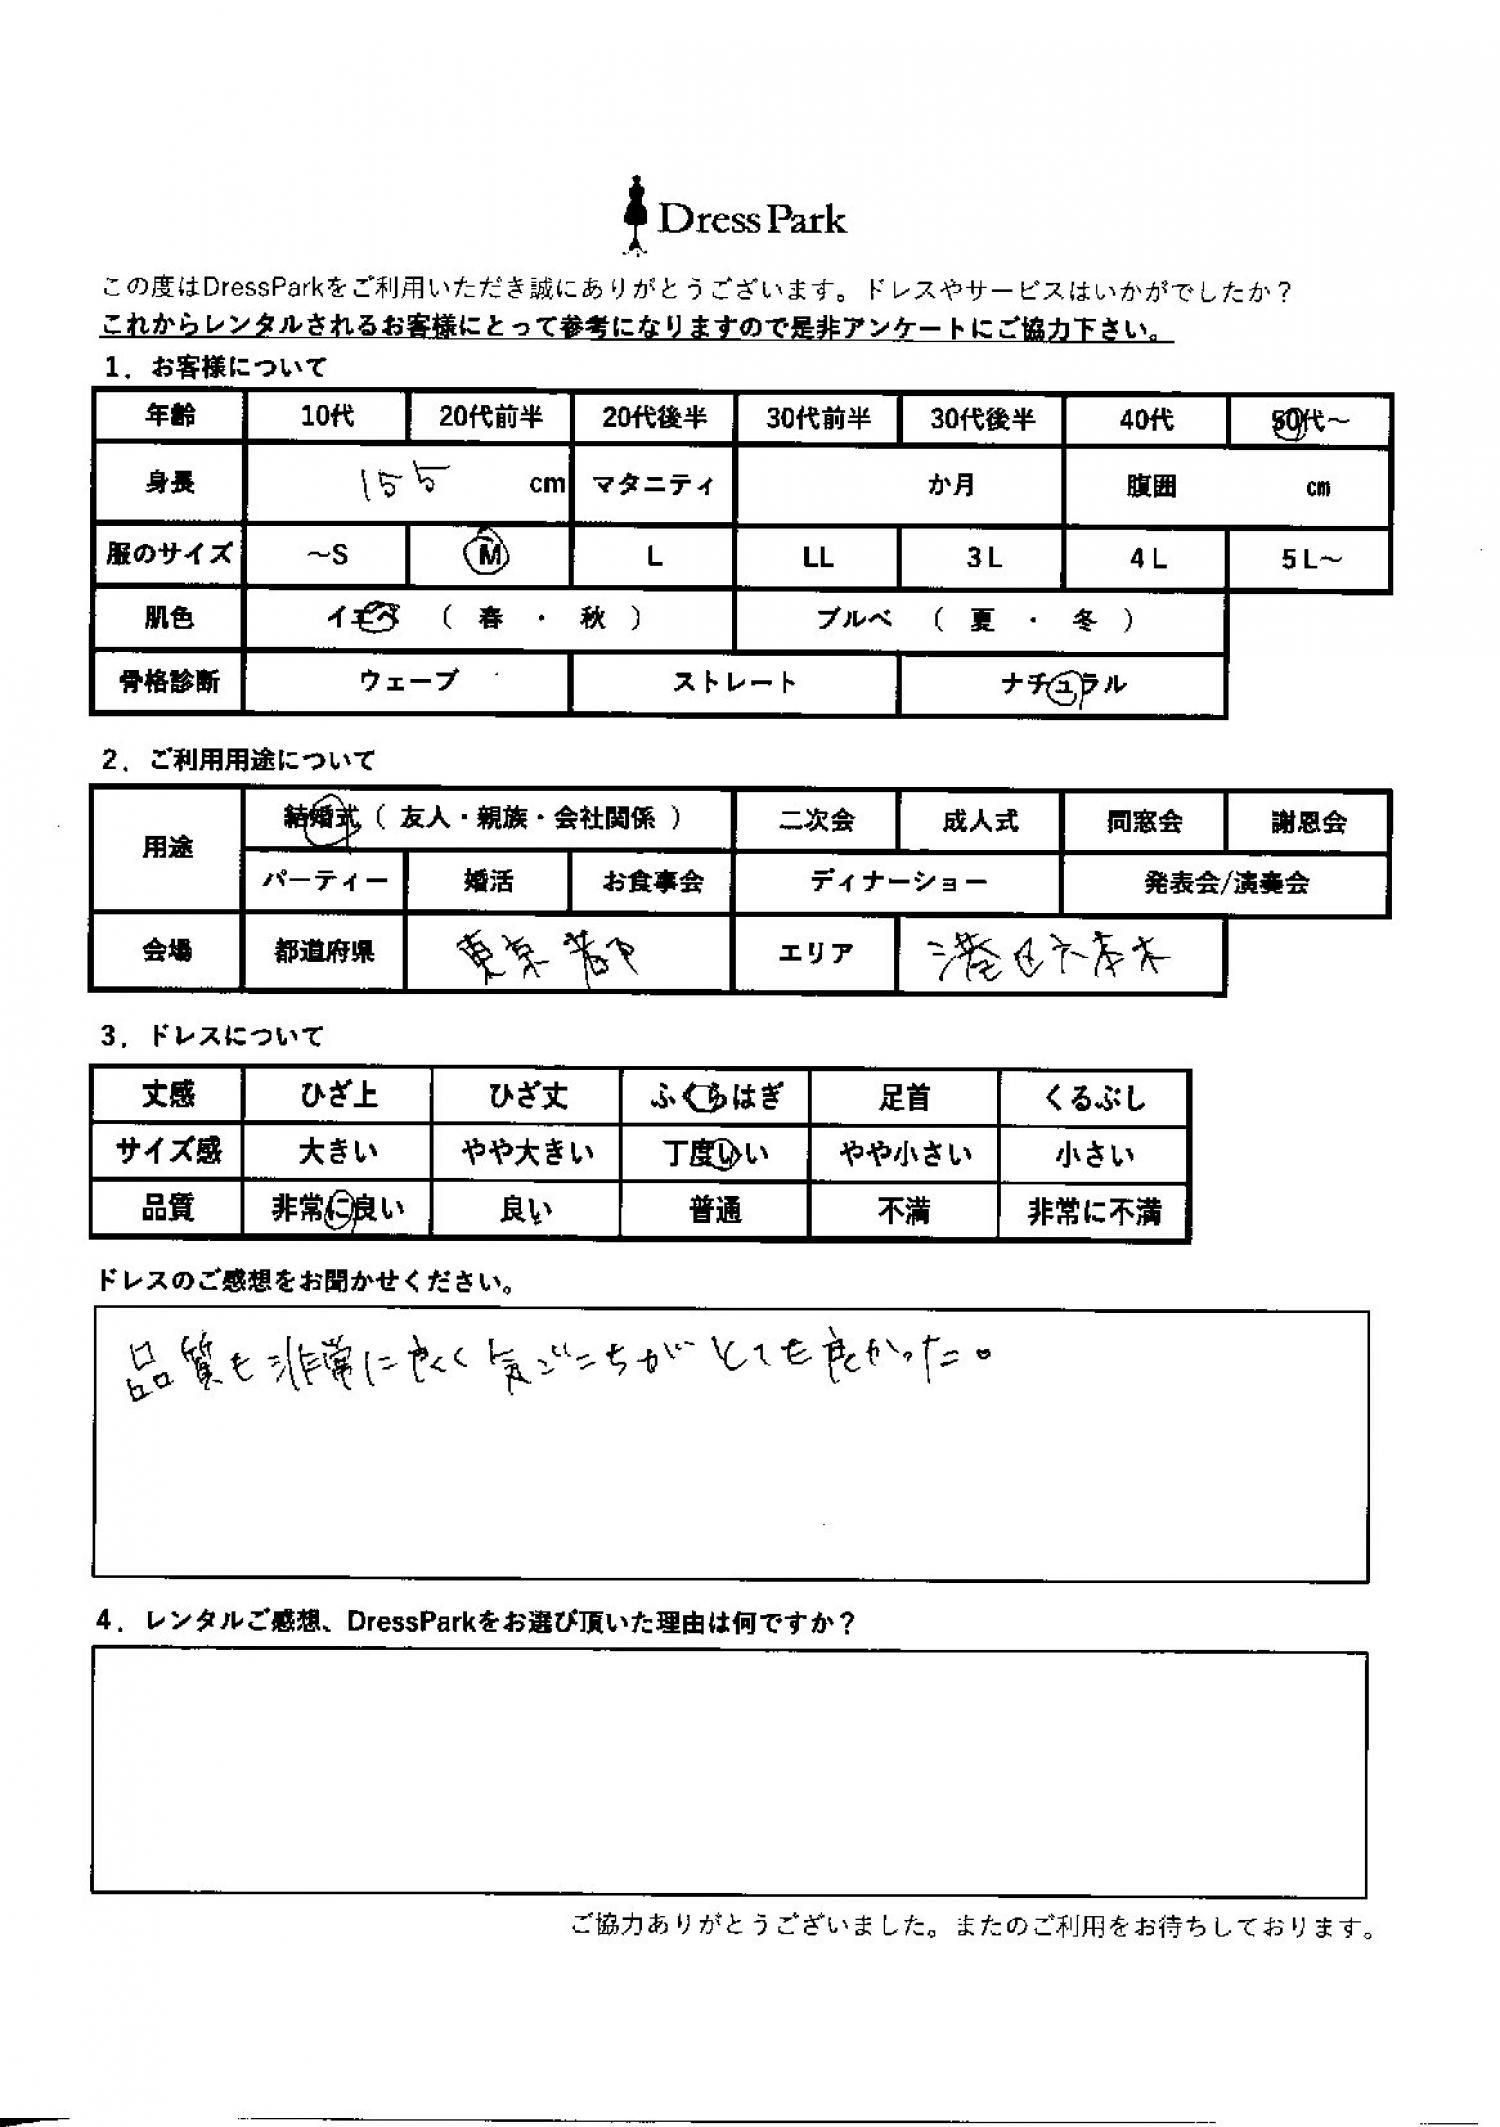 Dress Park
この度はDressParkをご利用いただき誠にありがとうございます。ドレスやサービスはいかがでしたか？
これからレンタルされるお客様にとって参考になりますので是非アンケートにご協力下さい。
1．お客様について
年齢 10代 20代前半 20代後半 30代前半 30代後半 40代 50代～
身長 155 cm マタニティ か月 腹囲 cm
服のサイズ ～S M L LL 3L 4L 5L～
肌色 イエベ （ 春 ・ 秋 ） ブルベ （ 夏 ・ 冬 ）
骨格診断 ウェーブ ストレート ナチュラル
2．ご利用用途について
用途 結婚式（ 友人・親族・会社関係 ） 二次会 成人式 同窓会 謝恩会
パーティー 婚活 お食事会 ディナーショー 発表会/演奏会
会場 都道府県 東京都 エリア 港区六本木
3．ドレスについて
丈感 ひざ上 ひざ丈 ふくらはぎ 足首 くるぶし
サイズ感 大きい やや大きい 丁度いい やや小さい 小さい
品質 非常に良い 良い 普通 不満 非常に不満
ドレスのご感想をお聞かせください。
品質も非常に良く気ごこちがとても良かった。
4．レンタルご感想、DressParkをお選び頂いた理由は何ですか？
ご協力ありがとうございました。またのご利用をお待ちしております。